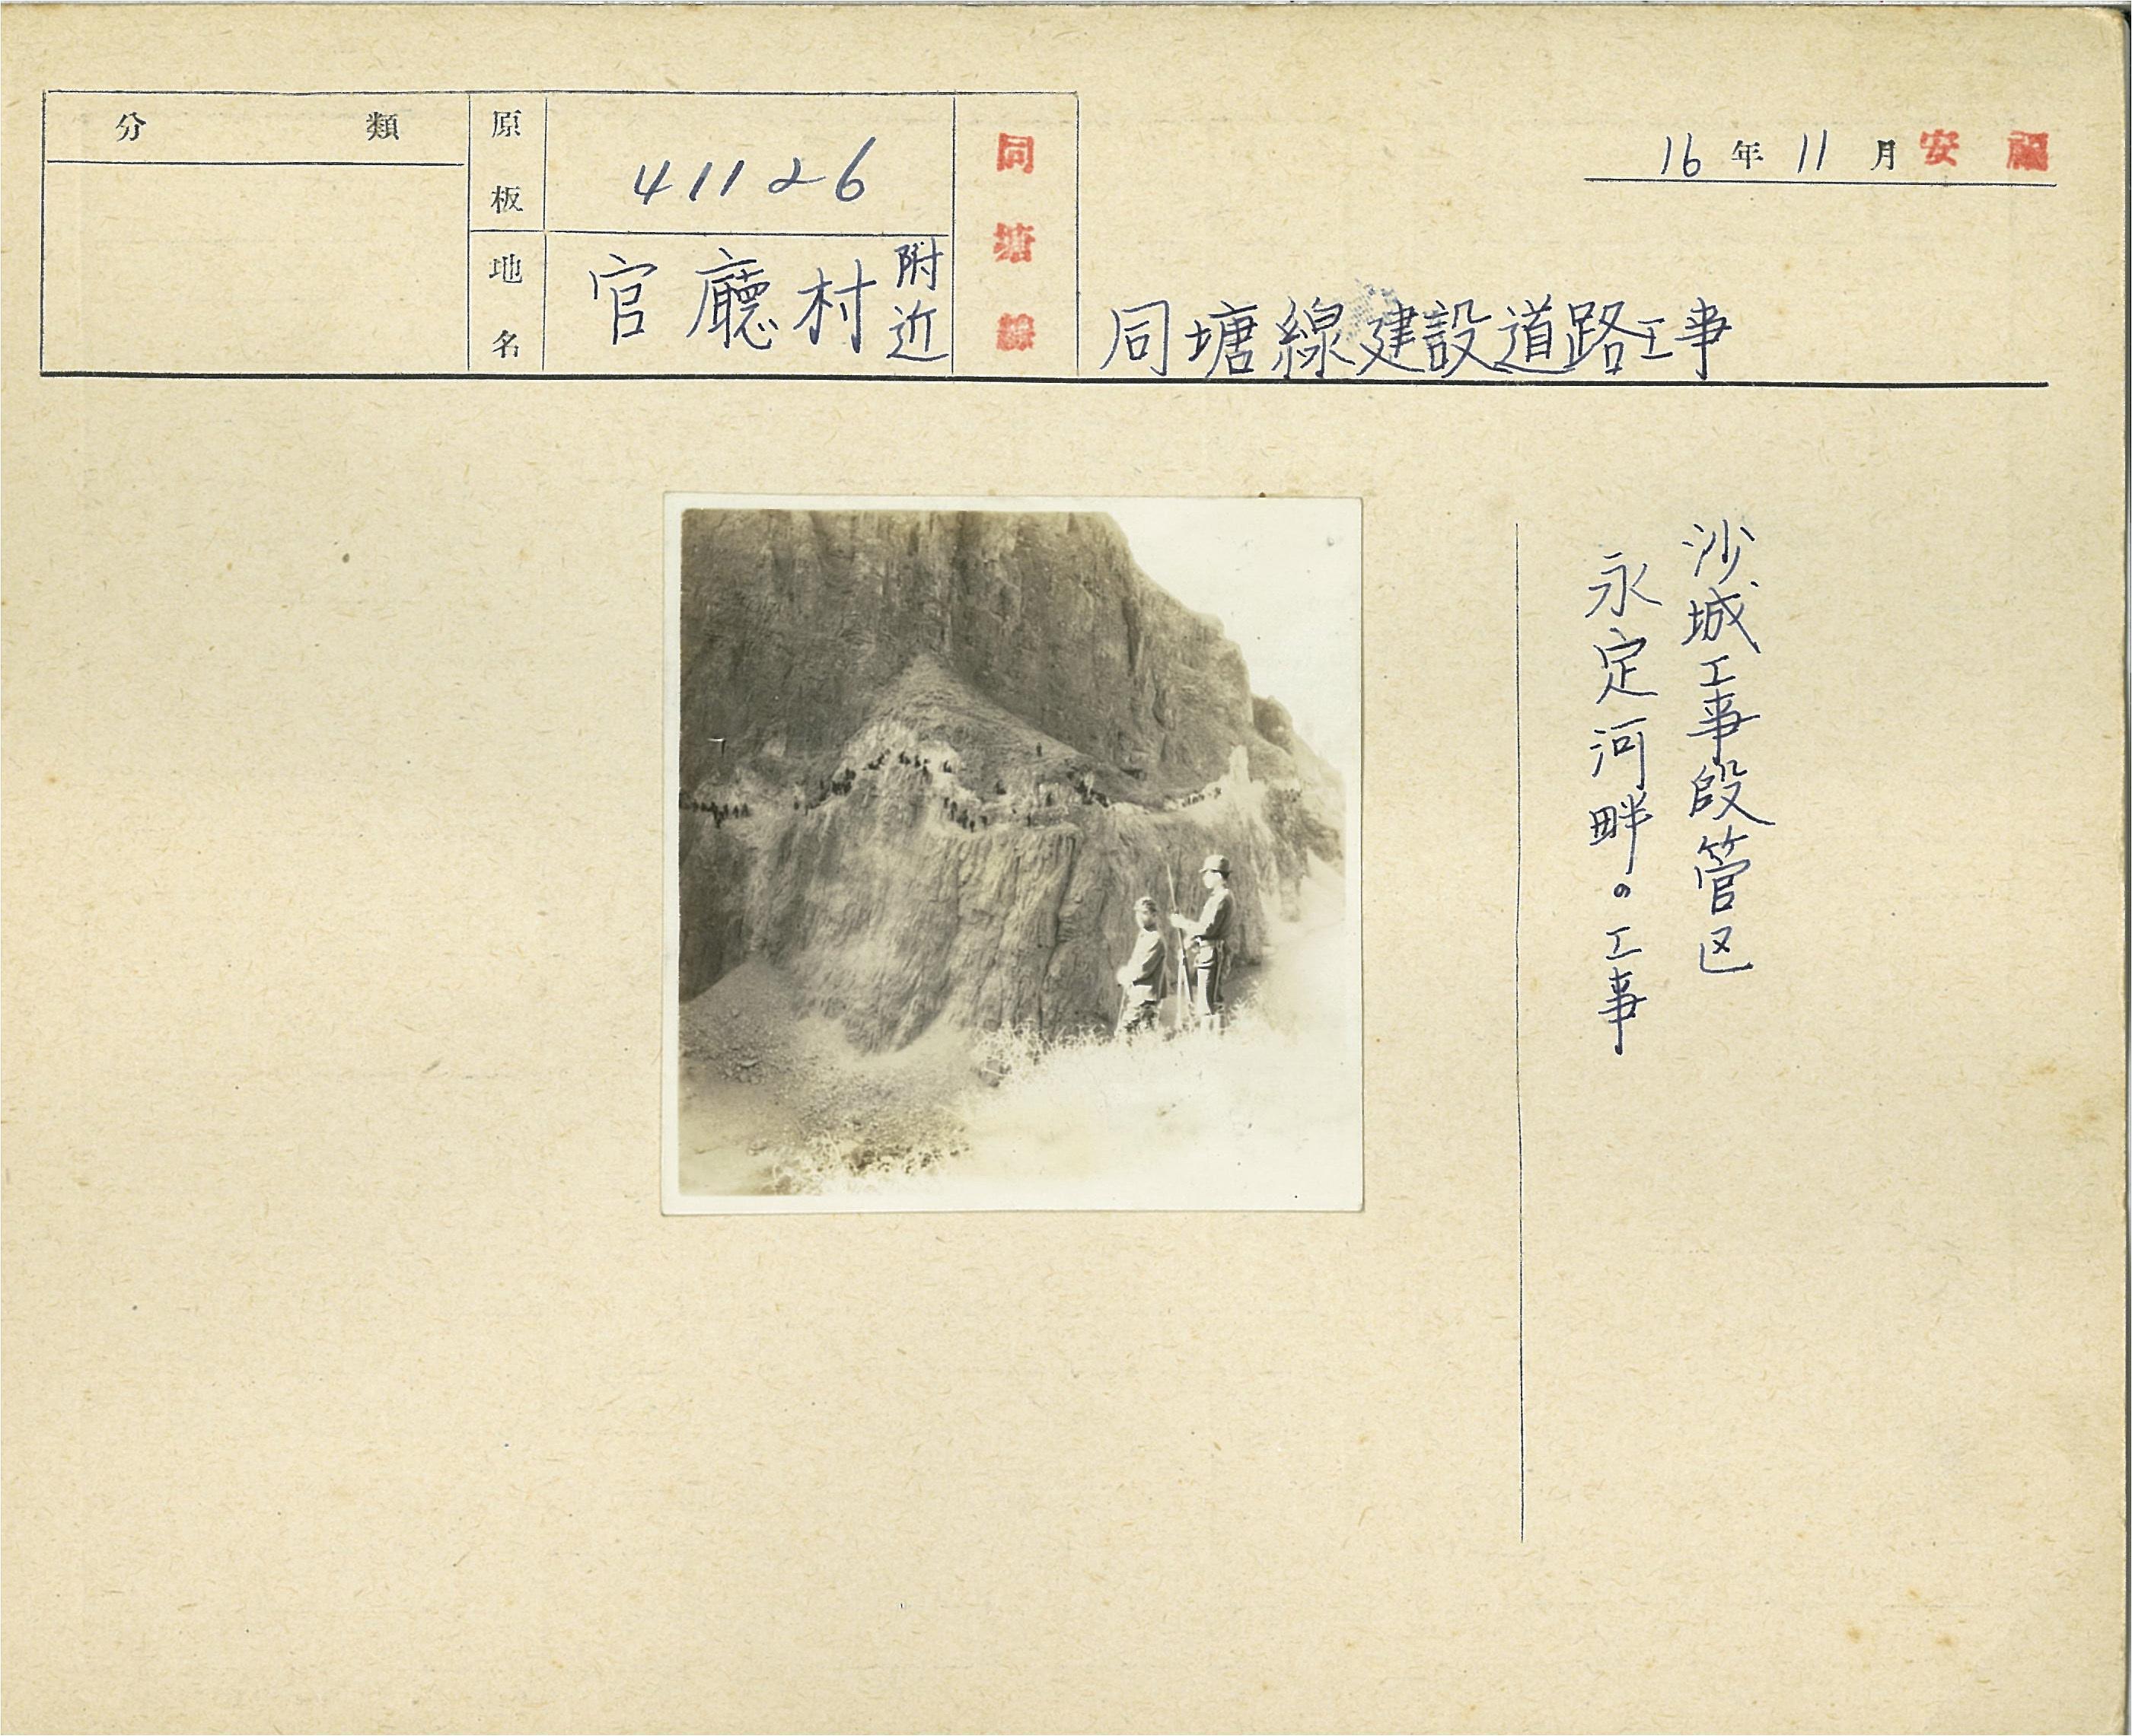 分類
原板
41126
地名
官廳村附近
同塘線
16年11月
安福
同塘線建設道路工事
沙城工事段管区
永定河畔の工事